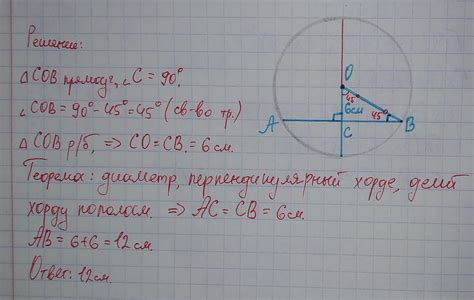 Решение:
△COB прямоуг, ∠C = 90°.
∠COB = 90° - 45° = 45° (св-во тр.)
△COB р/б, ⇒ CO = CB = 6 см.
Теорема: диаметр, перпендикулярный хорде, делит
хорду пополам. ⇒ AC = CB = 6 см.
AB = 6 + 6 = 12 см.
Ответ: 12 см.
O
45°
6 см
45°
A
B
C